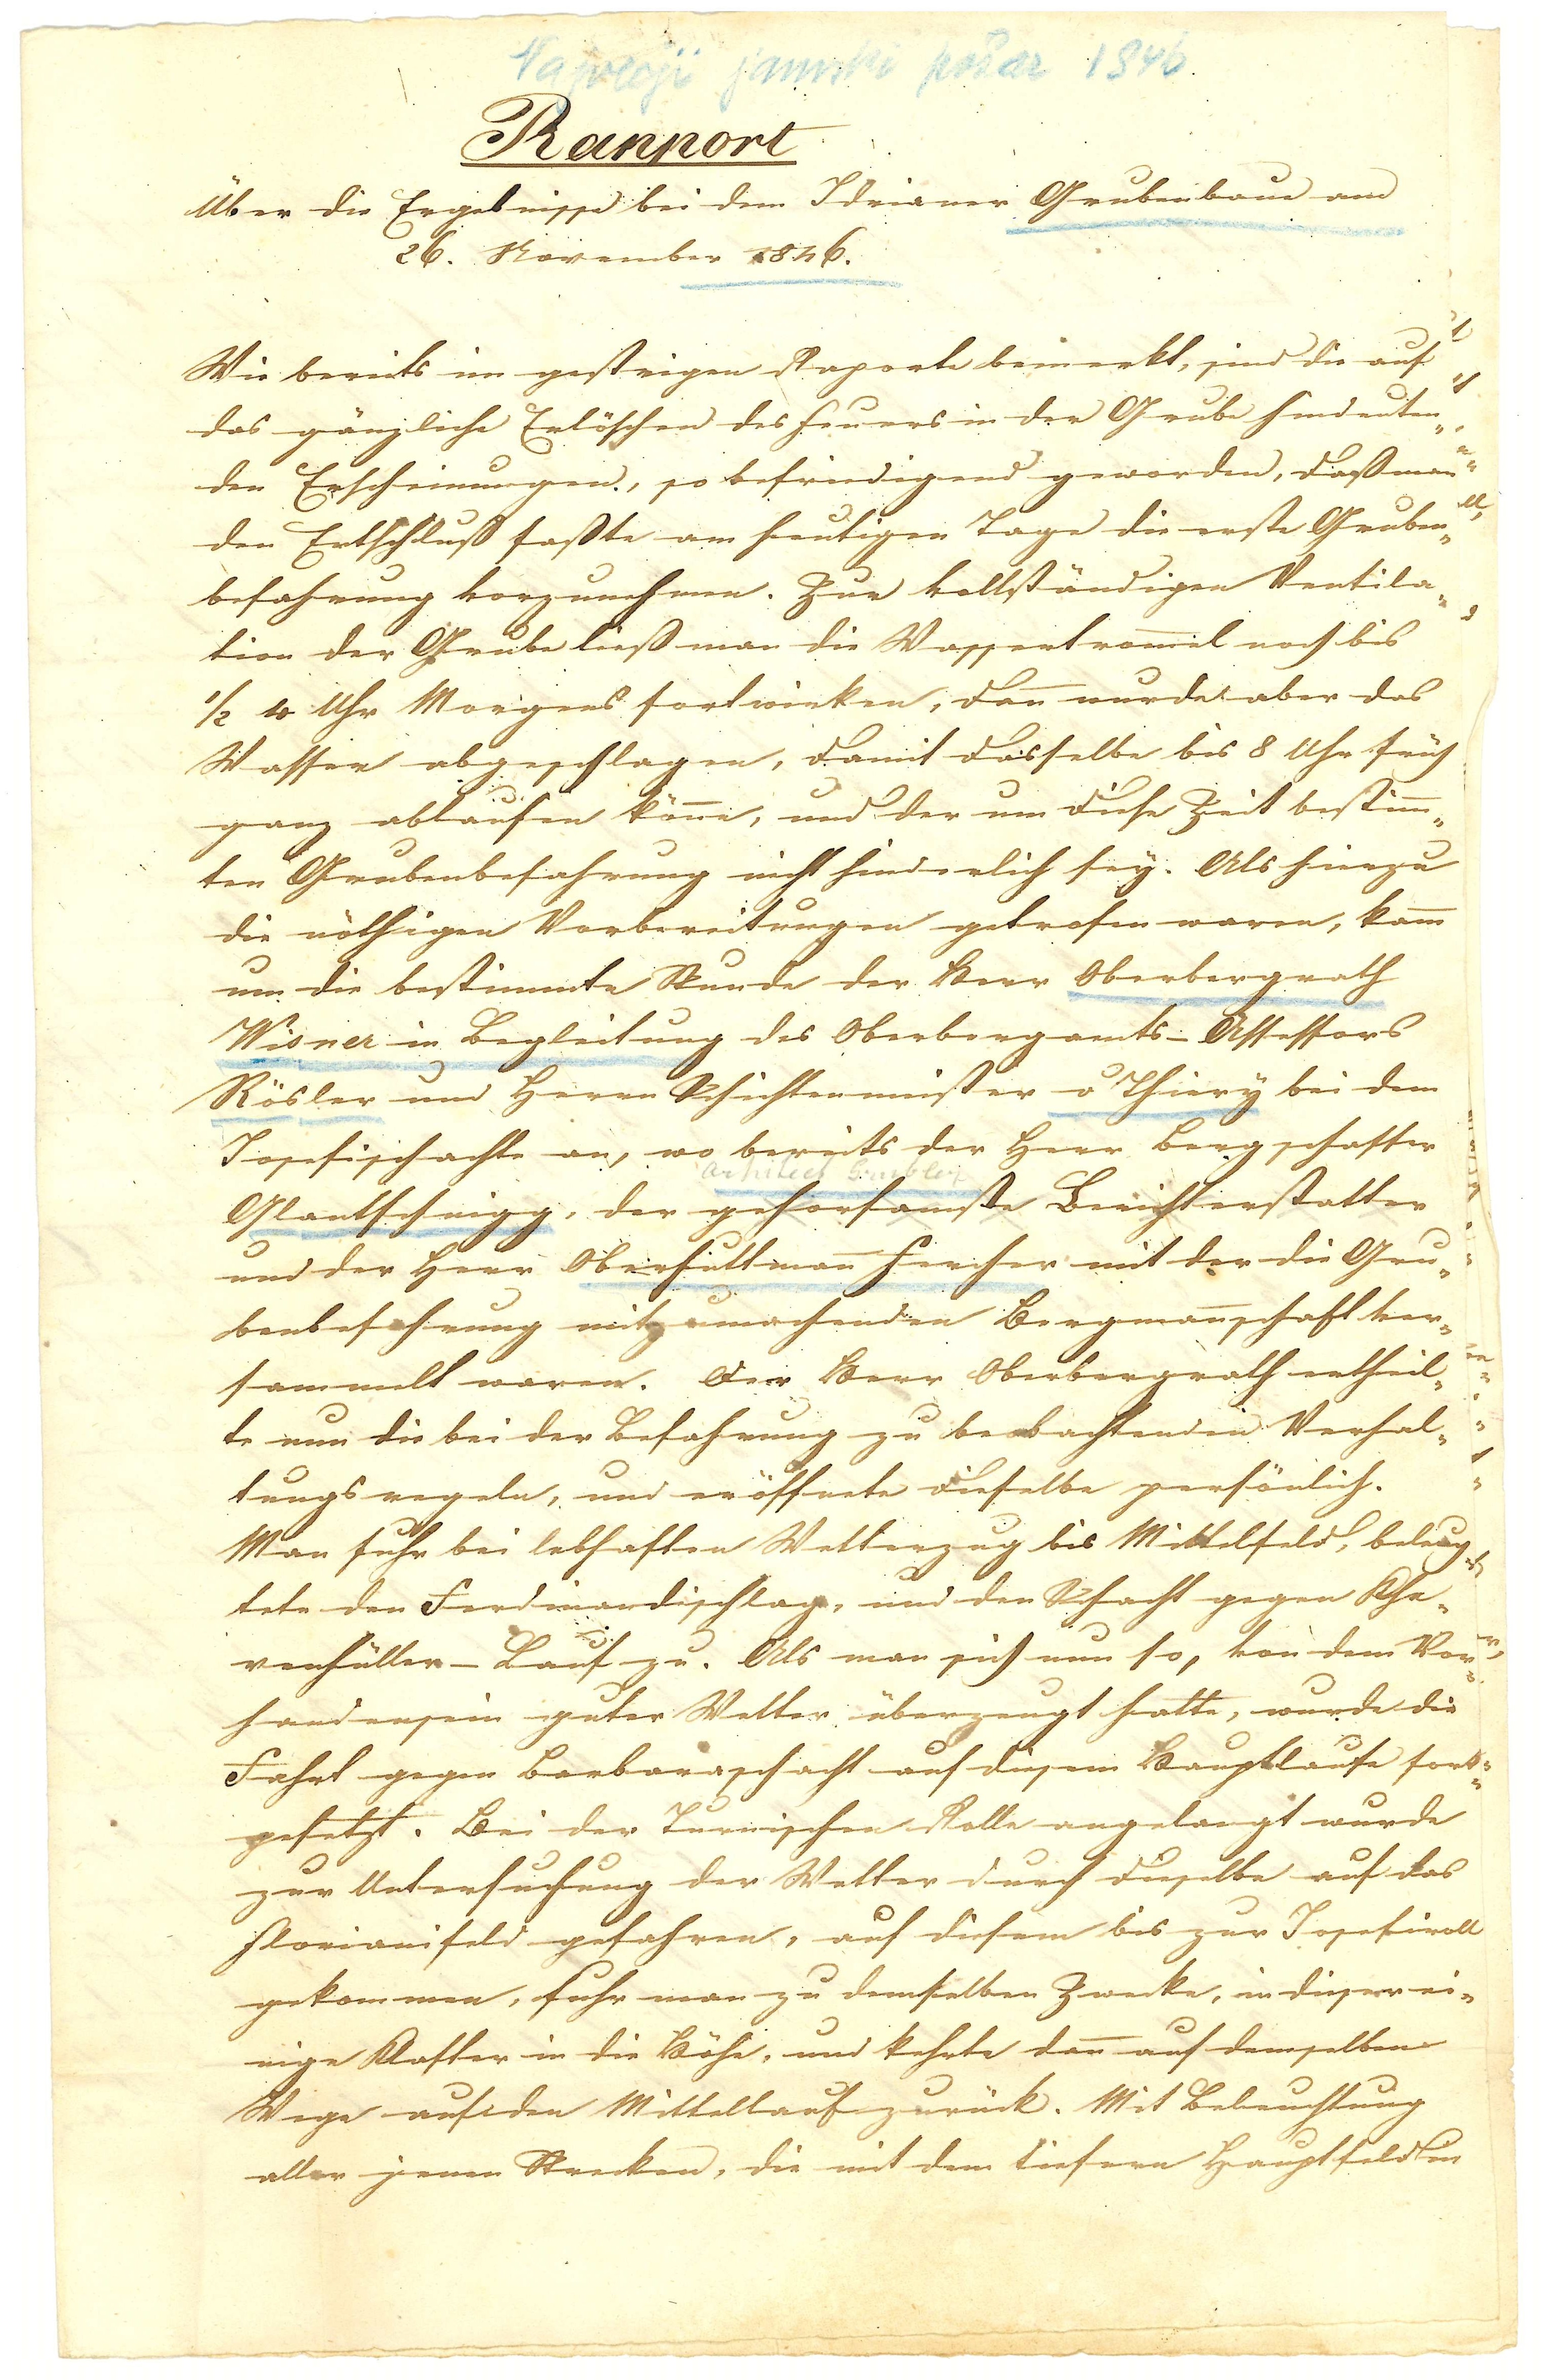 Največji jamski požar 1846.
Rapport
Über die Ergebnisse bei dem Idrianer Grubenbaue am
26. November 1846.
Wie bereits im gestrigen Raporte bemerkt, sind die auf
das gänzliche Erlöschen des Feuers in der Grube hindeuten„
den Erscheinungen, so befriedigend geworden, daß man
den Entschluß faßte am heutigen Tage die erste Gruben„
befahrung vorzunehmen. Zur vollständigen Ventila„
tion der Grube ließ man die Wassertrom̄el noch bis
½ 4 Uhr Morgens fortwirken, dan̄ wurde aber das
Wasser abgeschlagen, damit dasselbe bis 8 Uhr früh
ganz ablaufen kön̄e, und der um diese Zeit bestim̄„
ten Grubenbefahrung nicht hinderlich sey. Als hierzu
die nöthigen Vorbereitungen getrofen waren, kam̄
um die bestimmte Stunde der Herr Oberbergrath
Wisner in Begleitung des Oberbergamts-Assessors
Rösler und Herrn Schichtenmeister v Thiery bei dem
Josefischachte an, wo bereits der Herr Bergschaffer
Glantschnigg, der gehorsamste Berichterstatter
und der Herr Oberhuttman̄ Fercher mit der die Gru„
benbefahrung mitzumachenden Bergman̄schaft ver„
sammelt waren. Der Herr Oberbergrath ertheil„
te nun die bei der Befahrung zu beobachtenden Verhal„
tungsregeln, und eröffnete dieselbe persönlich.
Man fuhr bei lebhaften Wetterzug bis Mittelfeld, beleuch„
tete den Ferdinandischlag, und den Schacht gegen Khe„
venhüller-Lauf zu. Als man sich nun so, von dem Vor„
handensein guter Wetter überzeugt hatte, wurde die
Fahrt gegen Barbaraschacht auf diesem Hauptlaufe fort„
gesetzt. Bei der Turnischen Rolle angelangt wurde
zur Untersuchung der Wetter durch dieselbe auf das
Florianifeld gefahren, auf diesem bis zur Josefiroll
gekommen, fuhr man zu demselben Zwecke, in dieser ei„
nige Klafter in die Höhe, und kehrte dan̄ auf demselben
Wege auf den Mittellauf zurück. Mit Beleuchtung
aller jenen Strecken, die mit dem tiefern Hauptfeld in